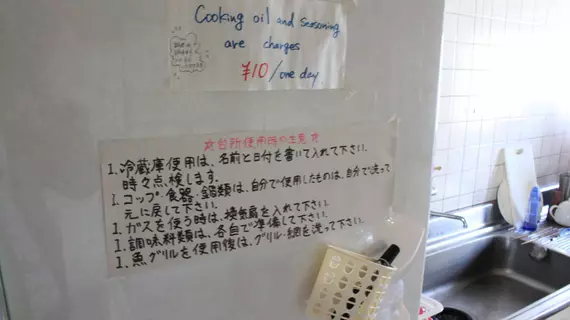 Cooking oil and seasoning
are charges
¥10/one day
☆台所使用時の注意☆
1.冷蔵庫使用は、名前と日付を書いて入れて下さい.
時々点検します.
1.コップ・食器・鍋類は、自分で使用したものは、自分で洗って
元に戻して下さい.
1.ガスを使う時は、換気扇を入れて下さい.
1.調味料類は、各自で準備して下さい.
1.魚グリルを使用後は、グリル・網を洗って下さい.